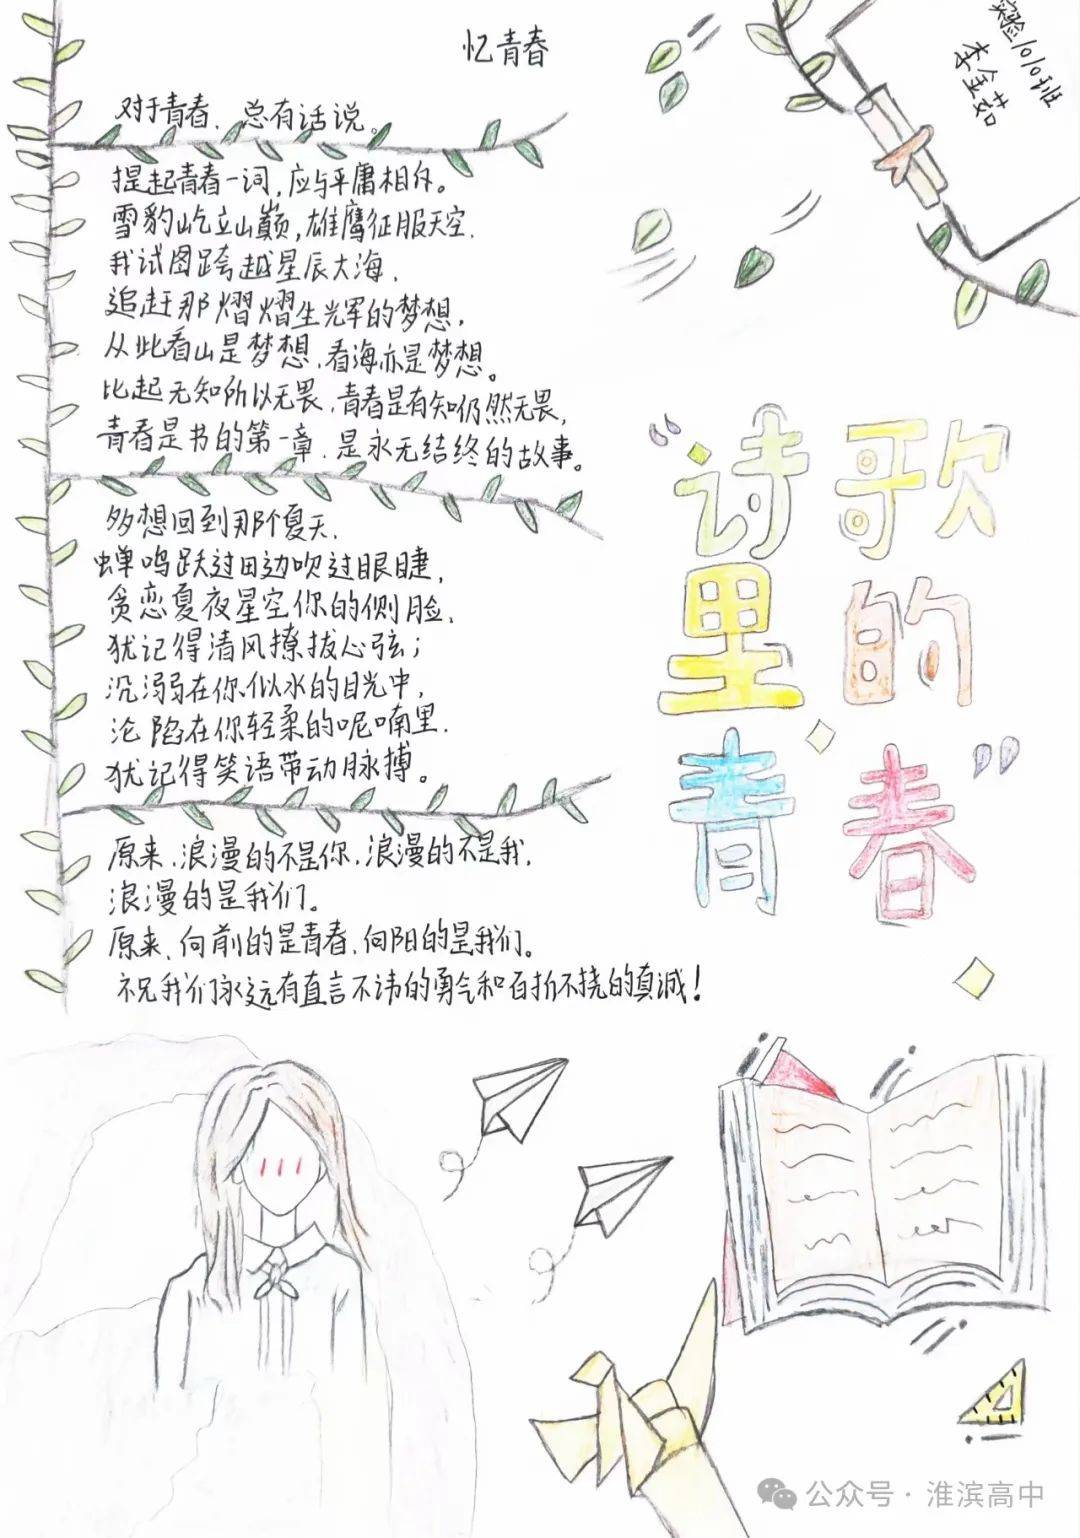 忆青春
实验1010班
李金茹
对于青春，总有话说。
提起青春一词，应与平庸相斥。
雪豹屹立山巅，雄鹰征服天空，
我试图跨越星辰大海，
追赶那熠熠生光军的梦想，
从此看山是梦想，看海亦是梦想。
比起无知所以无畏，青春是有知仍然无畏，
青春是书的第一章，是永无结终的故事。
多想回到那个夏天，
蝉鸣跃过田边吹过眼睫，
贪恋夏夜星空你的侧脸，
犹记得清风撩拔心弦；
沉溺在你似水的目光中，
沦陷在你轻柔的呢喃里，
犹记得笑语带动脉搏。
原来，浪漫的不是你，浪漫的不是我，
浪漫的是我们。
原来，向前的是青春，向阳的是我们。
祝我们永远有直言不讳的勇气和百折不挠的真诚！
“诗歌
里的
青春”
公众号·淮滨高中